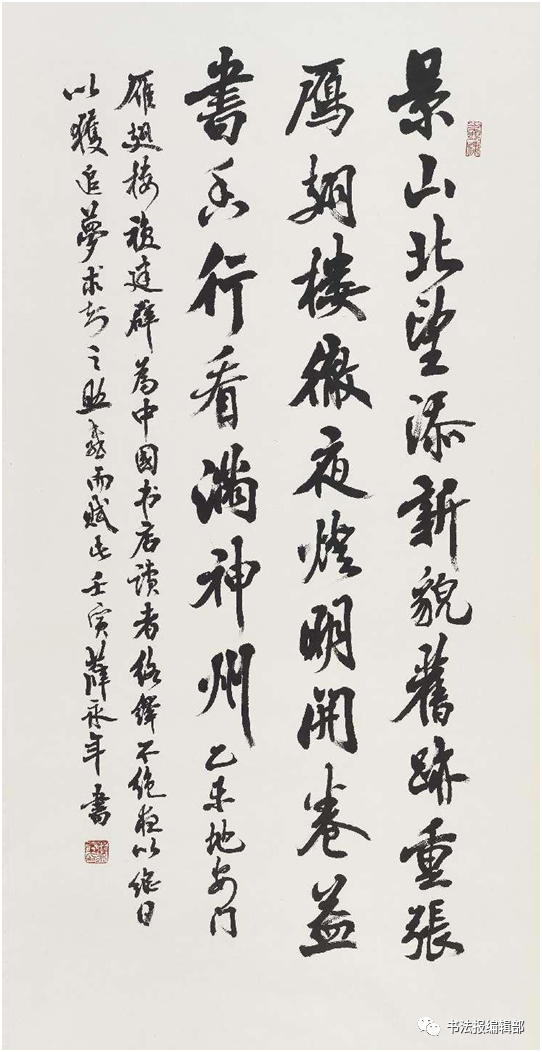 景山北望添新貌舊跡重張
鴈翅樓徹夜燈明開卷益
書香行看滿神州乙未地安门
雁翅樓複建辟為中國书店讀者絡繹不绝夜以繼日
以獲追夢求知之助喜而賦此壬寅薛永年書
书法报编辑部